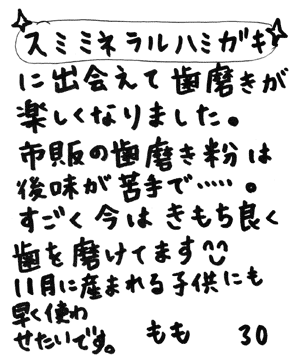 スミミネラルハミガキ
に出会えて歯磨きが
楽しくなりました。
市販の歯磨き粉は
後味が苦手で‥‥。
すごく今はきもち良く
歯を磨けてます
11月に産まれる子供にも
早く使わ
せたいです。 もも 30